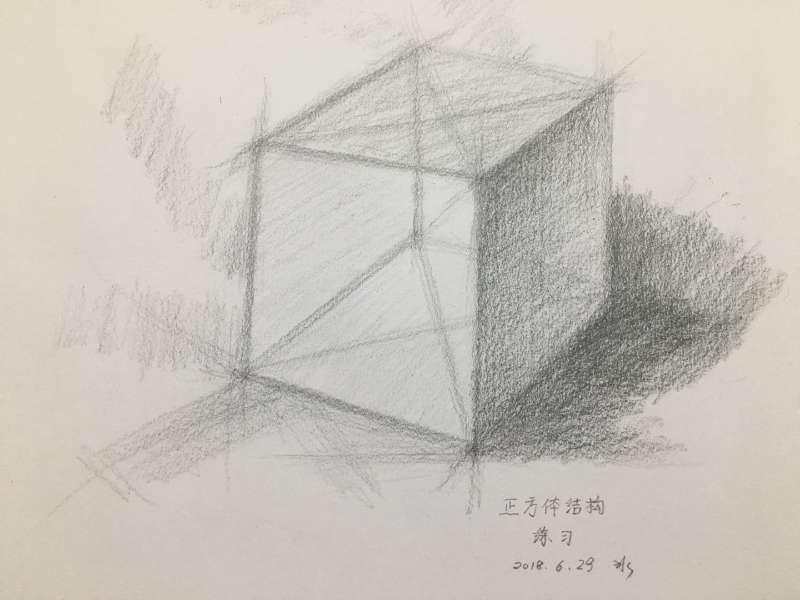 正方体结构
练习
2018.6.29 冰